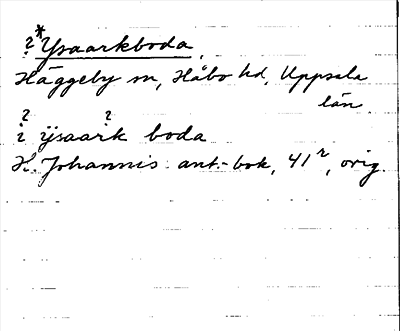 ?*Ysaarkboda,
Häggeby sn, Håbo hd, Uppsala
län.
? ?
i ÿsaark boda
H. Johannis ant.-bok, 41r, orig.